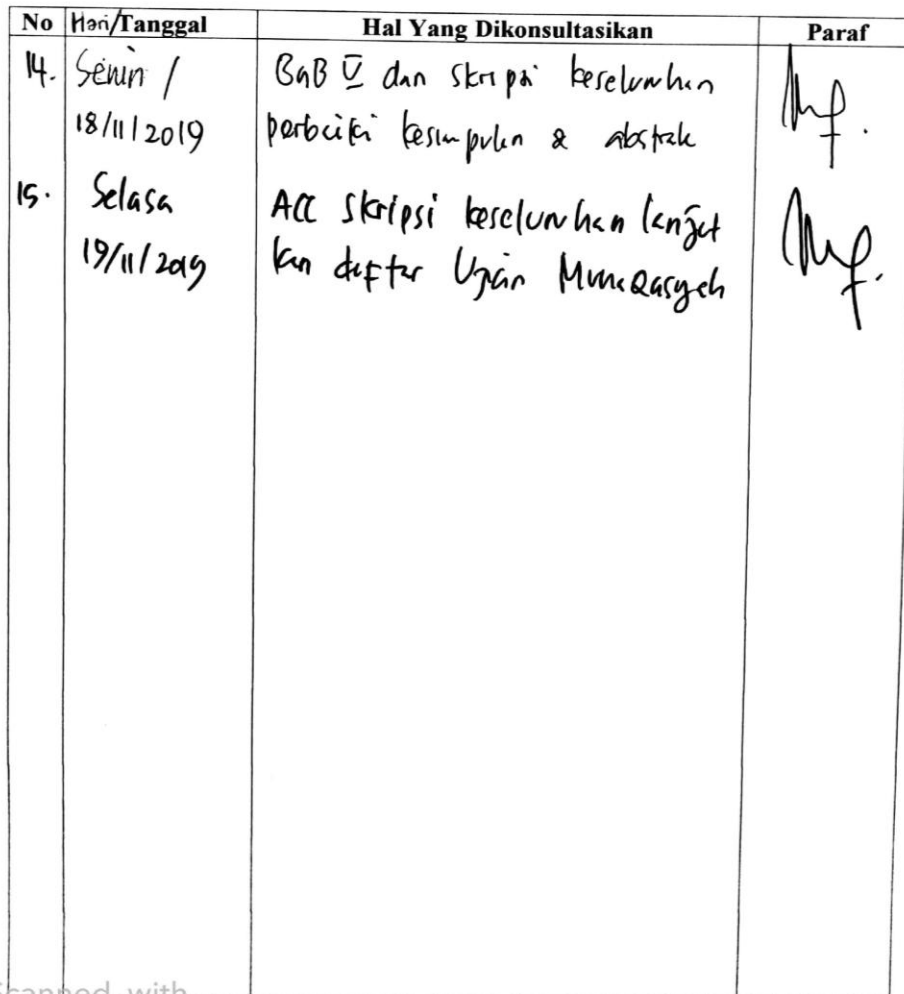 No Hari/Tanggal Hal Yang Dikonsultasikan Paraf
14. Senin / BaB V dan skripsi keseluruhan
18/11/2019 perbaiki kesimpulan & abstrak
15. Selasa ACC Skripsi keseluruhan lanjut
19/11/2019 kan daftar Ujian Munaqasyah
Scanned with